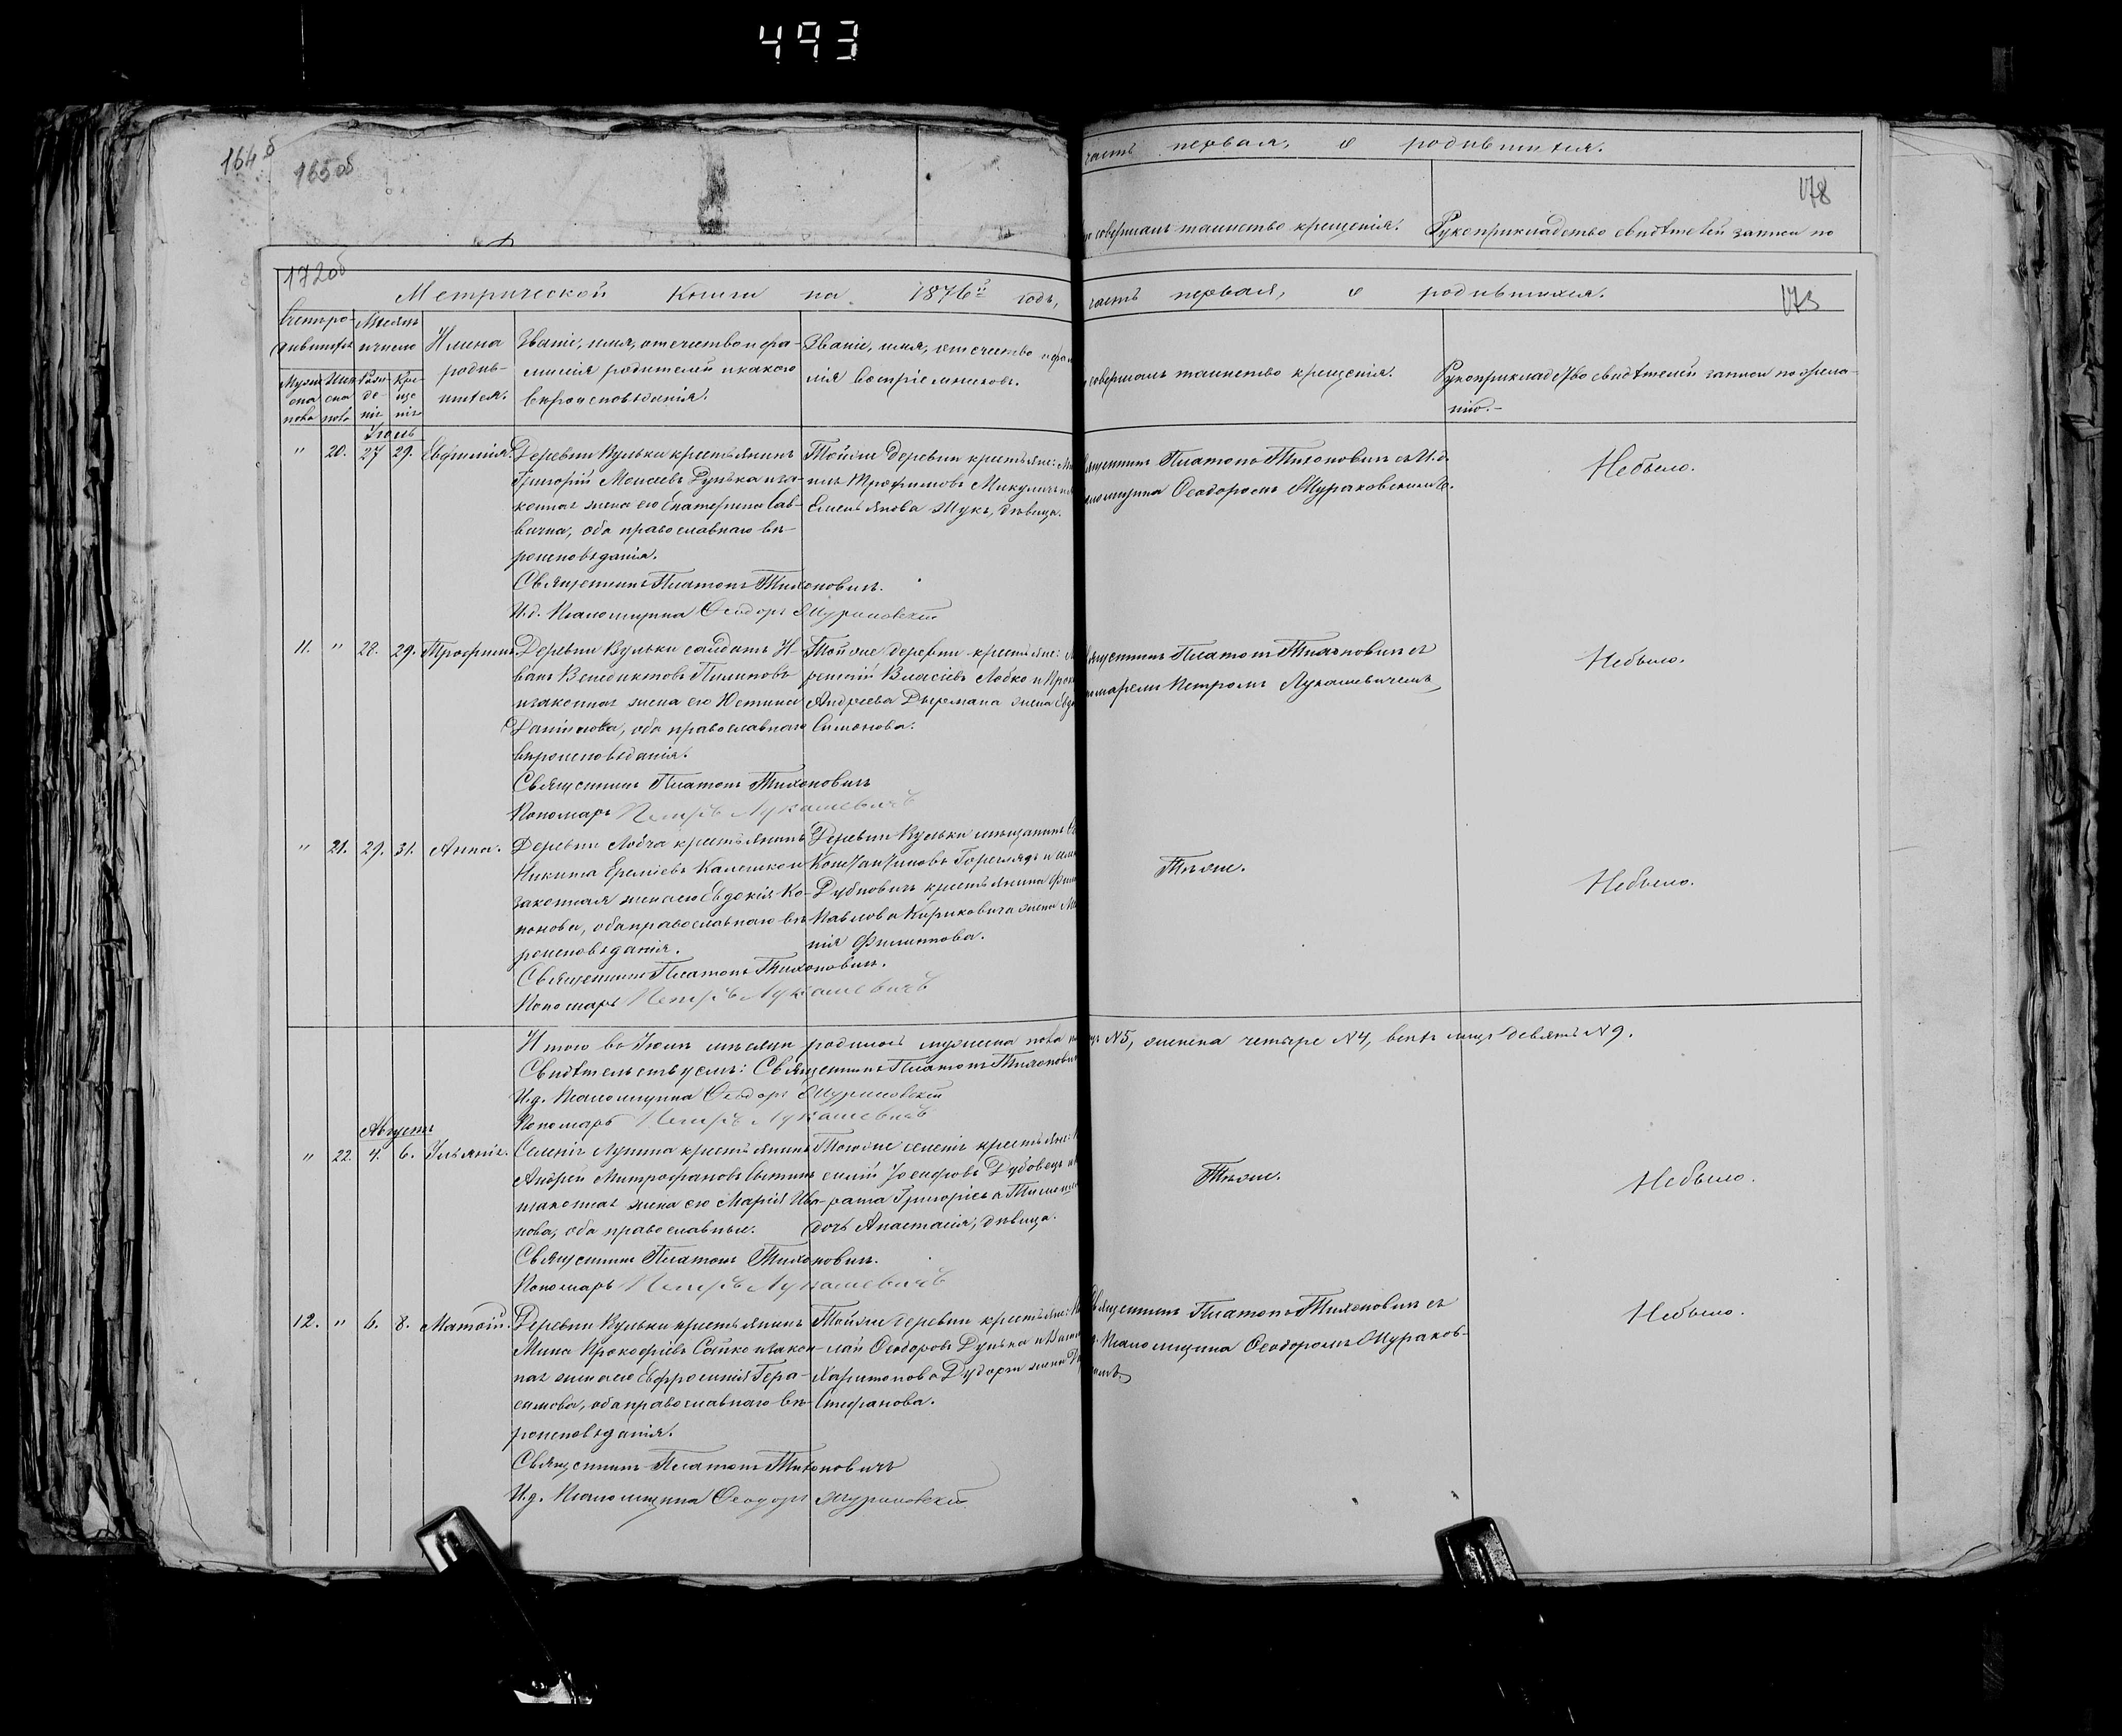 493
164б
165об
часть первая, о родившихся.
178
совершалъ таинство крещенія.
Рукоприкладство свидѣтелей записи по
172об
Метрической Книги на 1876й годъ,
часть первая, о родившихся.
173
Счетъ ро-
дившихся
Мѣсяцъ
и число
Муже
ска
пола
Жен
ска
пола
Рож
де-
нія
Кре-
ще
нія
Имена
родив-
шихся.
Званіе, имя, отечество и фа-
милія родителей и какого
вѣроисповѣданія.
Званіе, имя, отечество и фами
лія воспріемниковъ.
совершалъ таинство крещенія.
Рукоприкладство свидѣтелей записи по жела-
нію.-
Іюль
" 20. 27 29. Евфимія.
Деревни Кульки крестьянинъ
Григорій Моисеевъ Дунька и за-
конная жена его Екатерина Сав-
вична, оба православнаго вѣ-
роисповѣданія.
Священникъ Платонъ Тихоновичъ.
И.д. Псаломщика Ѳеодоръ
Тойже деревни крестьяне:
Трофимовъ Микуличъ
Емельянова Жукъ, дѣвица.
Священникъ Платонъ Тихоновичъ съ И.д.
Псаломщика Ѳеодоромъ
Небыло.
11. " 28. 29. Трофимъ.
Деревни Кульки солдатъ И-
ванъ Венедиктовъ Пилиповъ
и законная жена его Юстина
Данилова, оба православнаго
вѣроисповѣданія.
Священникъ Платонъ Тихоновичъ
Пономарь Петръ Лукашевичъ
Тойже деревни крестьяне:
Власіевъ Лобко и
Андреева жена
Симонова.
Священникъ Платонъ Тихоновичъ съ
пономаремъ Петромъ Лукашевичемъ
Небыло.
" 21. 29. 31. Анна.
Деревни Лобча крестьянинъ
Никита Калешко и
законная жена его Евдокія Ко-
нонова, оба православнаго вѣ-
роисповѣданія.
Священникъ Платонъ Тихоновичъ.
Пономарь Петръ Лукашевичъ
Деревни Кульки мѣщанинъ
Константиновъ Гореглядъ и
Дубновичъ крестьянина
Павлова Кириковича жена
нія Филиппова.
Тѣже.
Небыло.
Итого въ Іюлѣ мѣсяцѣ родилось мужеска пола
№5, женска четыре №4, всѣхъ лицъ девять №9.
Свидѣтельствуемъ: Священникъ Платонъ Тихоновичъ
И.д. Псаломщика Ѳеодоръ
Пономарь Петръ Лукашевичъ
Августъ
" 22. 4. 6. Уліанія.
Селенія Лунина крестьянинъ
Андрей Митрофановъ
и законная жена его Марія Ива-
нова, оба православные.
Священникъ Платонъ Тихоновичъ.
Пономарь Петръ Лукашевичъ
Тогоже селенія крестьяне:
Іосифовъ Дубовецъ
Григорьева
дочь Анастасія, дѣвица.
Тѣже.
Небыло.
12. " 6. 8. Матѳій.
Деревни Кульки крестьянинъ
Мина Прокофіевъ Сайко и закон-
ная жена его Евфросинія Гера-
симова, оба православнаго вѣ-
роисповѣданія.
Священникъ Платонъ Тихоновичъ
И.д. Псаломщика Ѳеодоръ
Тойже деревни крестьяне:
лай Ѳеодоровъ Дунька и
Харитонова жена
Стефанова.
Священникъ Платонъ Тихоновичъ съ
Псаломщика Ѳеодоромъ
Небыло.